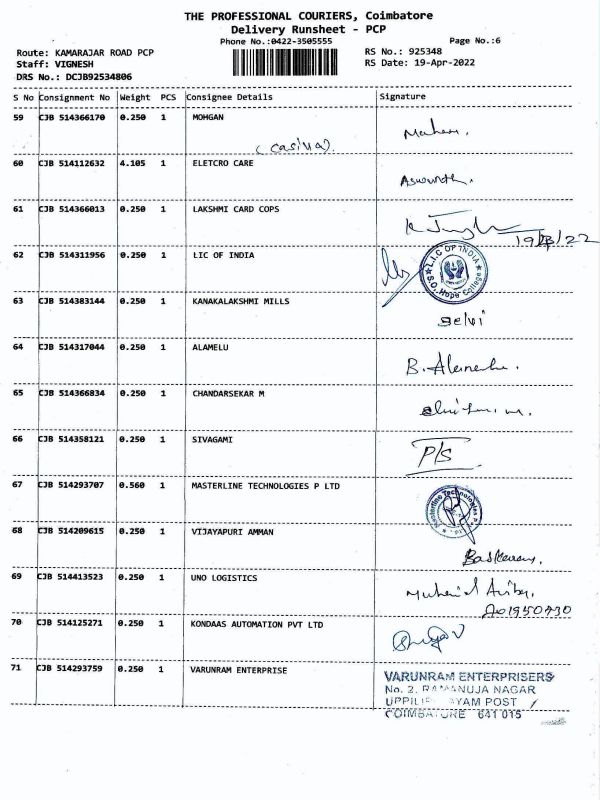 THE PROFESSIONAL COURIERS, Coimbatore
Delivery Runsheet - PCP
Phone No.:0422-3505555
Page No.:6
Route: KAMARAJAR ROAD PCP
RS No.: 925348
Staff: VIGNESH
RS Date: 19-Apr-2022
DRS No.: DCJB92534806
S No Consignment No Weight PCS Consignee Details Signature
59 CJB 514366170 0.250 1 MOHGAN
60 CJB 514112632 4.105 1 ELETCRO CARE
61 CJB 514366013 0.250 1 LAKSHMI CARD COPS
62 CJB 514311956 0.250 1 LIC OF INDIA
L.I.C OF INDIA
S.O. Hope College
63 CJB 514383144 0.250 1 KANAKALAKSHMI MILLS
selvi
64 CJB 514317044 0.250 1 ALAMELU
65 CJB 514366834 0.250 1 CHANDARSEKAR M
66 CJB 514358121 0.250 1 SIVAGAMI
P/S
67 CJB 514293707 0.560 1 MASTERLINE TECHNOLOGIES P LTD
Masterline Technologies P Ltd.
68 CJB 514209615 0.250 1 VIJAYAPURI AMMAN
69 CJB 514413523 0.250 1 UNO LOGISTICS
70 CJB 514125271 0.250 1 KONDAAS AUTOMATION PVT LTD
71 CJB 514293759 0.250 1 VARUNRAM ENTERPRISE
VARUNRAM ENTERPRISERS
No. 2, RAMANUJA NAGAR
POST
COIMBATORE 641 015